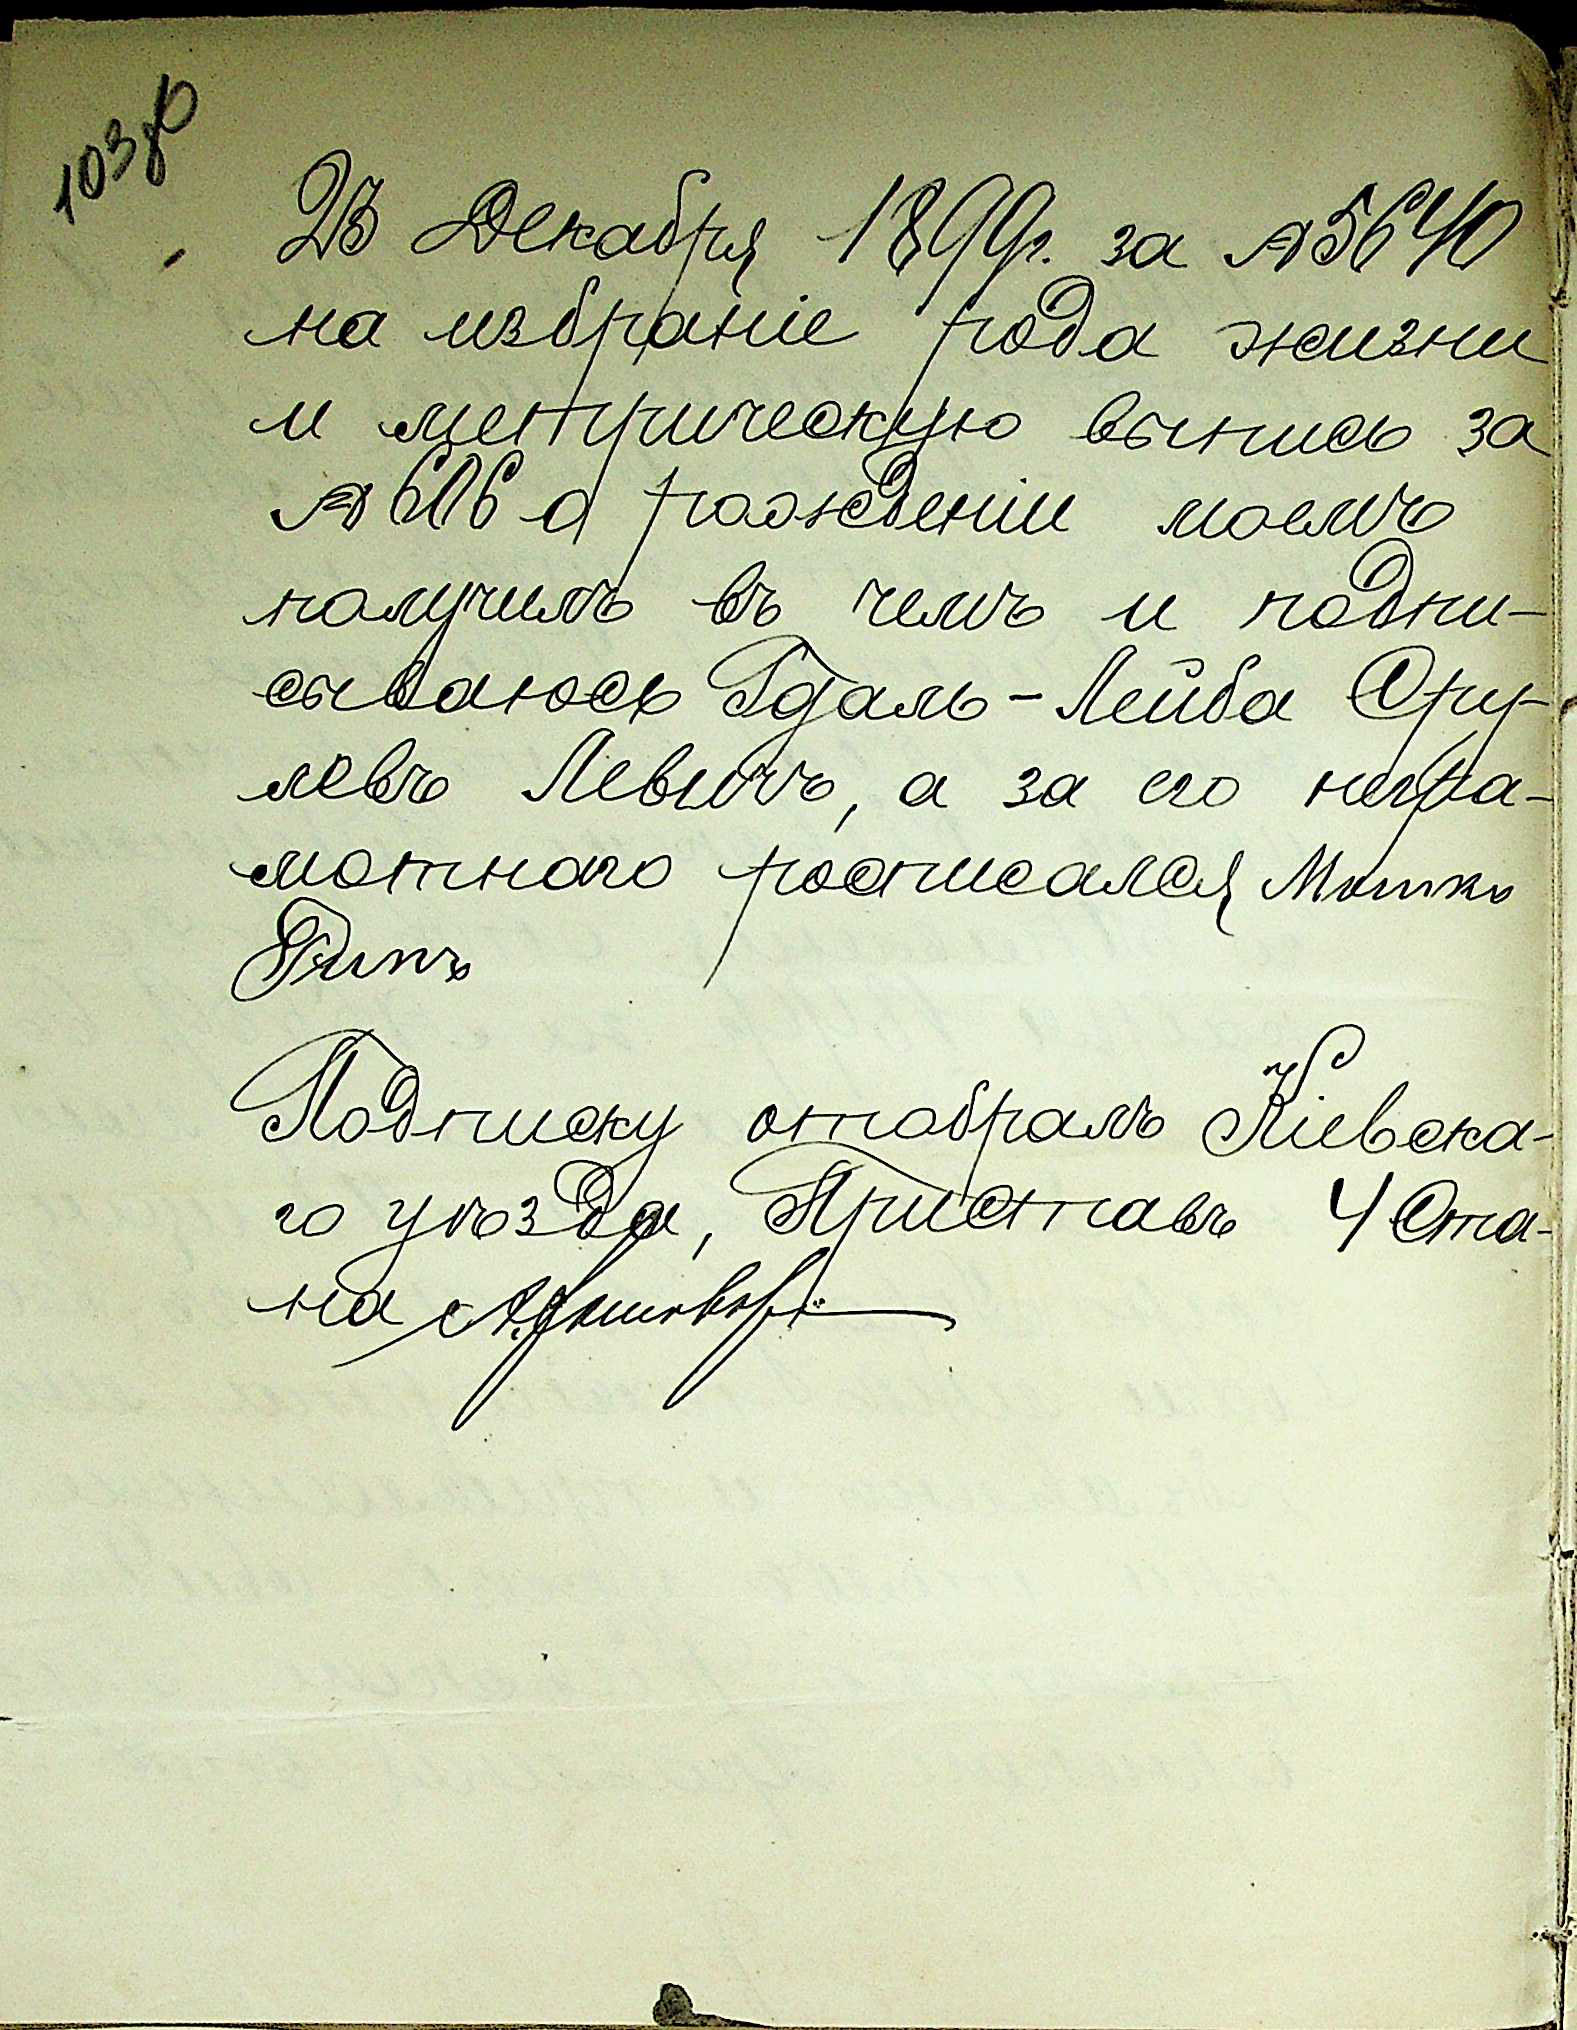 103 об
23 Декабря 1899 г. за № 5640
на избраніе рода жизни
и метрическую выпись за
№ 606 о рожденіи моемъ
получилъ въ чемъ и подпи-
сываюсь Гдаль-Лейба Сру-
левъ Левитъ, а за его негра-
мотнаго росписался Мошко
Подписку отобралъ Кіевска-
го уѣзда, Приставъ 4 Ста-
на